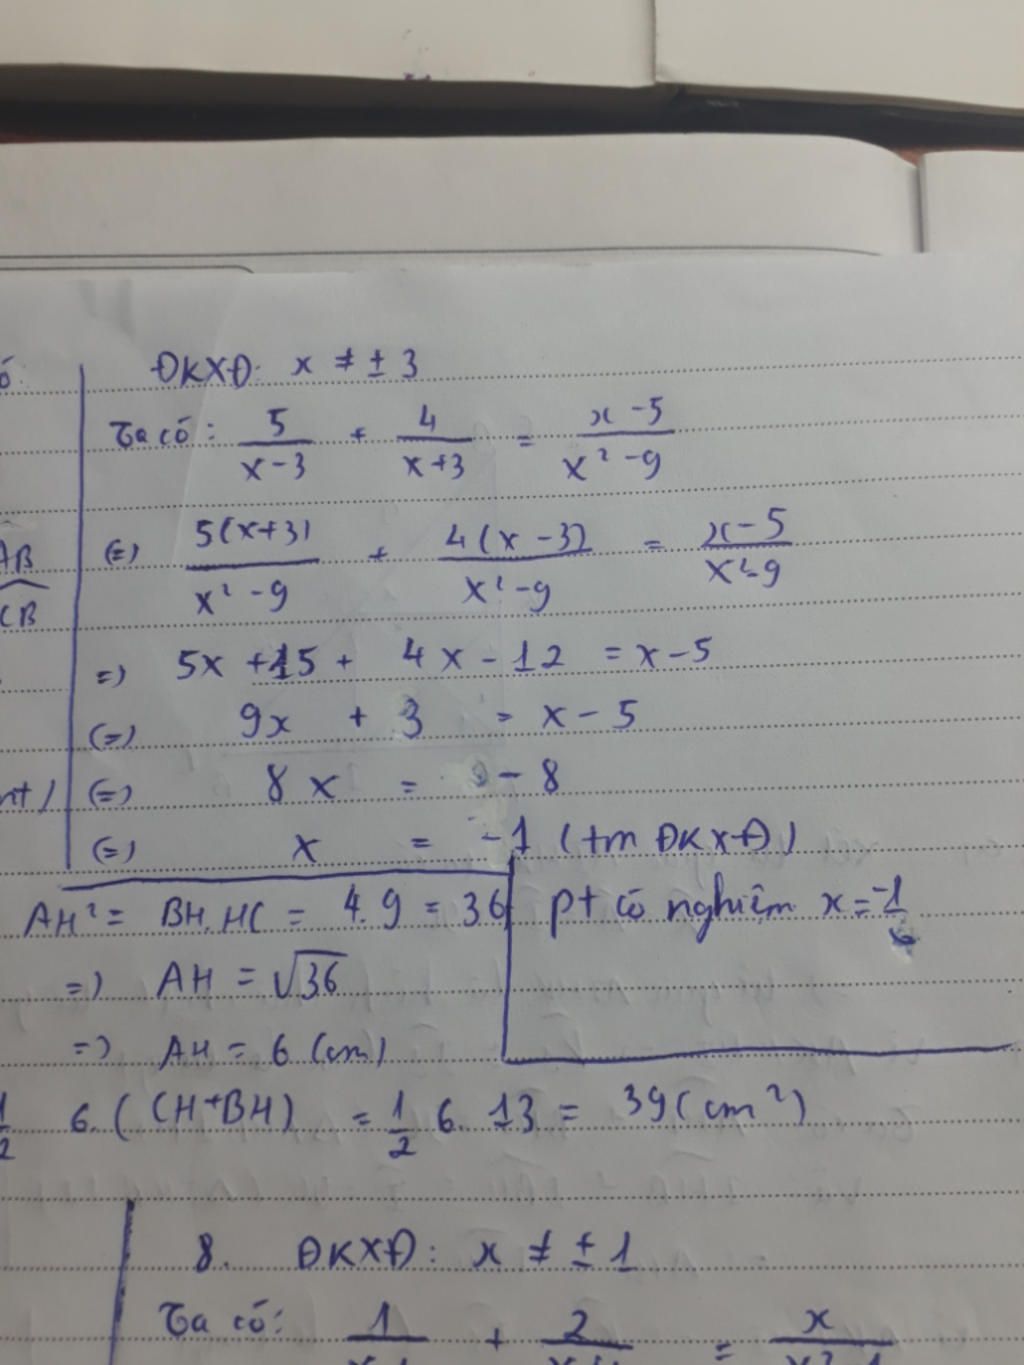 ó
ĐKXĐ: x ≠ ± 3
Ta có: 5/(x-3) + 4/(x+3) = (x-5)/(x²-9)
AB
CB
(=) 5(x+3)/(x²-9) + 4(x-3)/(x²-9) = (x-5)/(x²-9)
=) 5x +15 + 4x - 12 = x - 5
(=) 9x + 3 = x - 5
(=) 8x = - 8
(=) x = -1 (tm ĐKXĐ)
pt có nghiệm x = -1
AH² = BH.HC = 4.9 = 36
=) AH = √36
=) AH = 6 (cm)
1/2 6.(CH+BH) = 1/2 6.13 = 39(cm²)
8. ĐKXĐ: x ≠ ± 1
Ta có: 1 + 2 = x